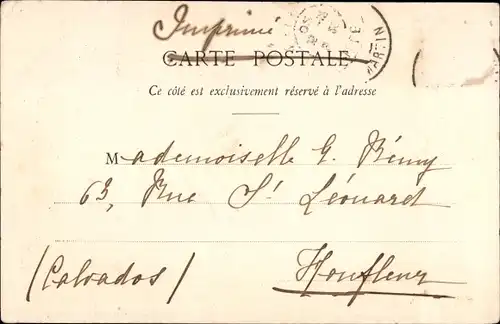 Imprimé
CARTE POSTALE
Ce côté est exclusivement réservé à l'adresse
Mademoiselle G. Rémy
63, Rue St Léonard
(Calvados) Honfleur